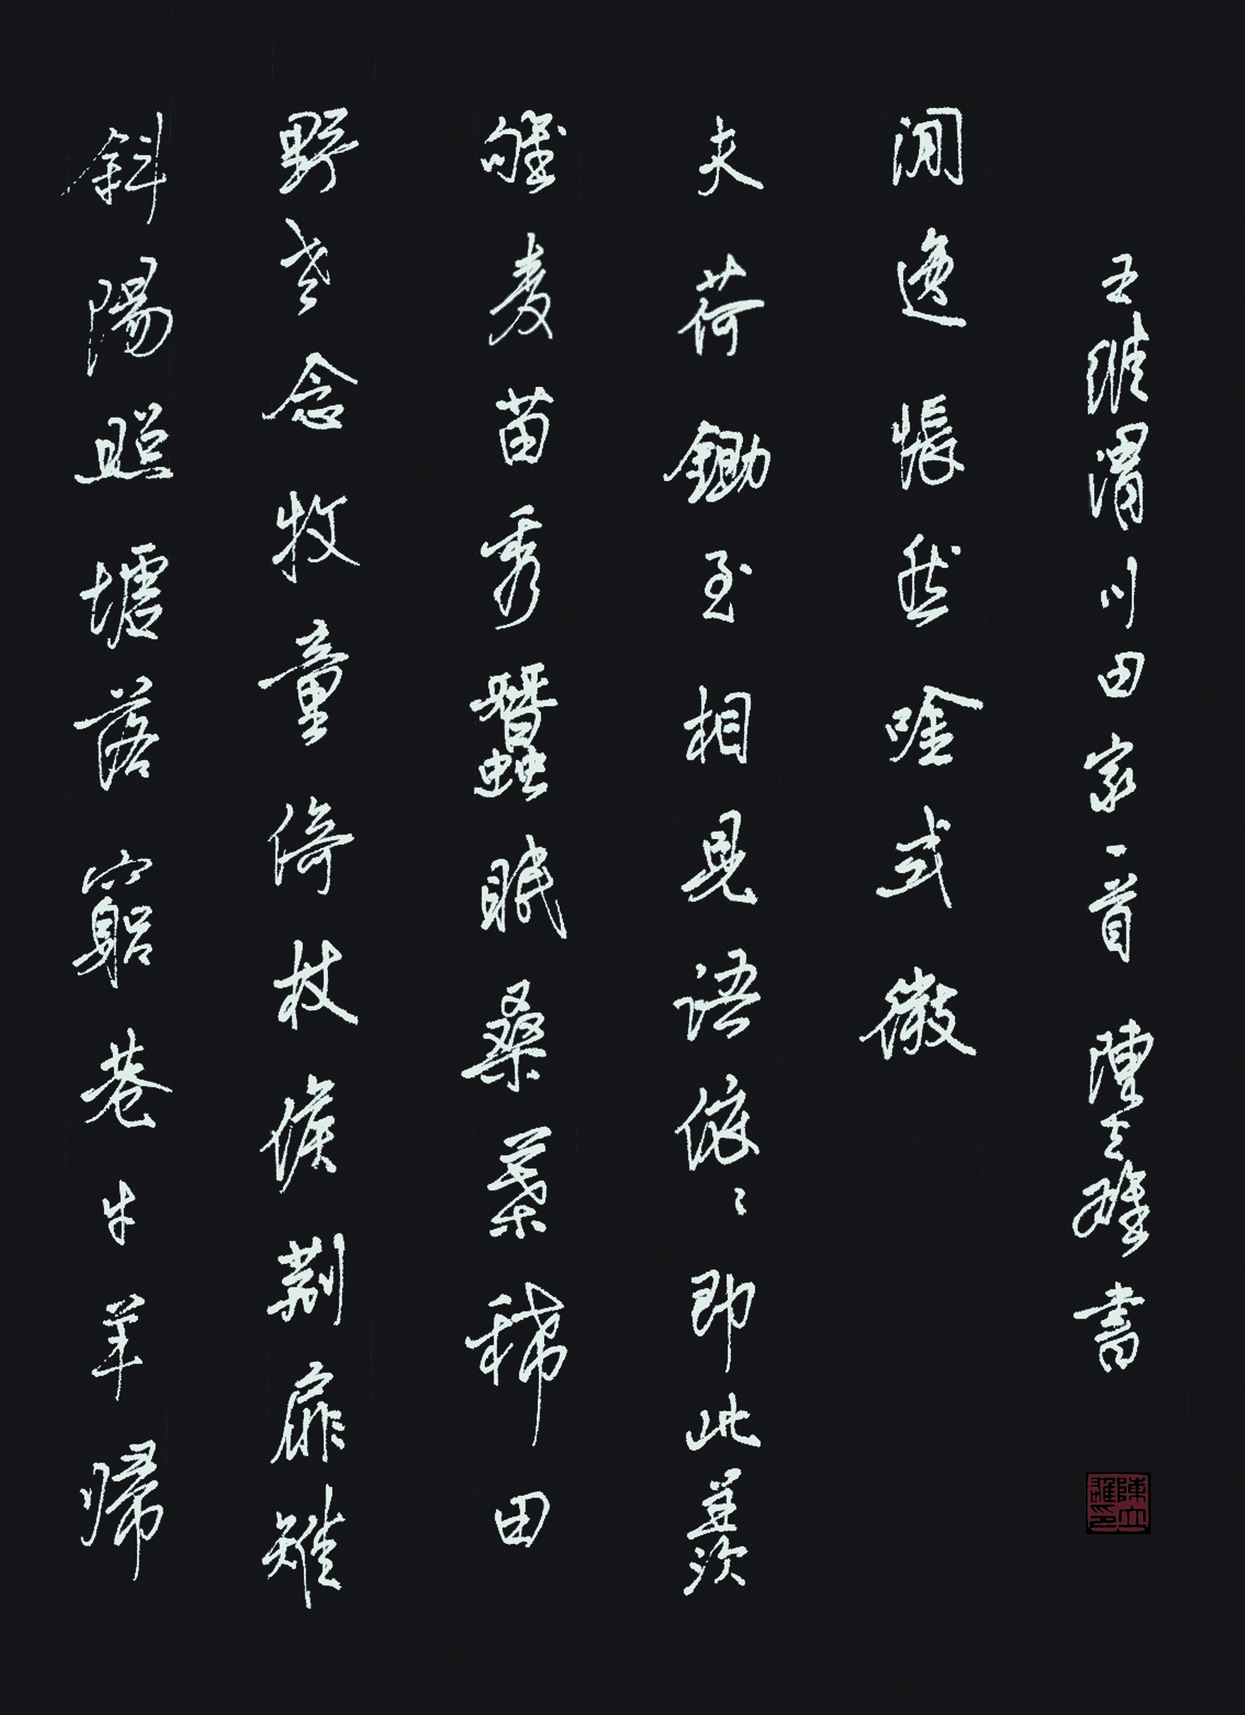 斜陽照墟落窮巷牛羊歸
野老念牧童倚杖候荆扉雉
雊麥苗秀蠶眠桑葉稀田
夫荷鋤至相見語依〻即此羨
閒逸悵然唫式微
王維渭川田家一首 陳立雄書